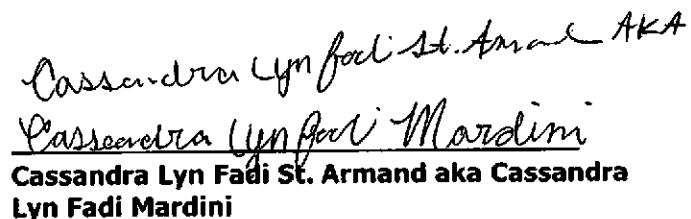 Cassandra Lyn Fadi St. Armand AKA
Cassandra Lyn Fadi Mardini
Cassandra Lyn Fadi St. Armand aka Cassandra
Lyn Fadi Mardini